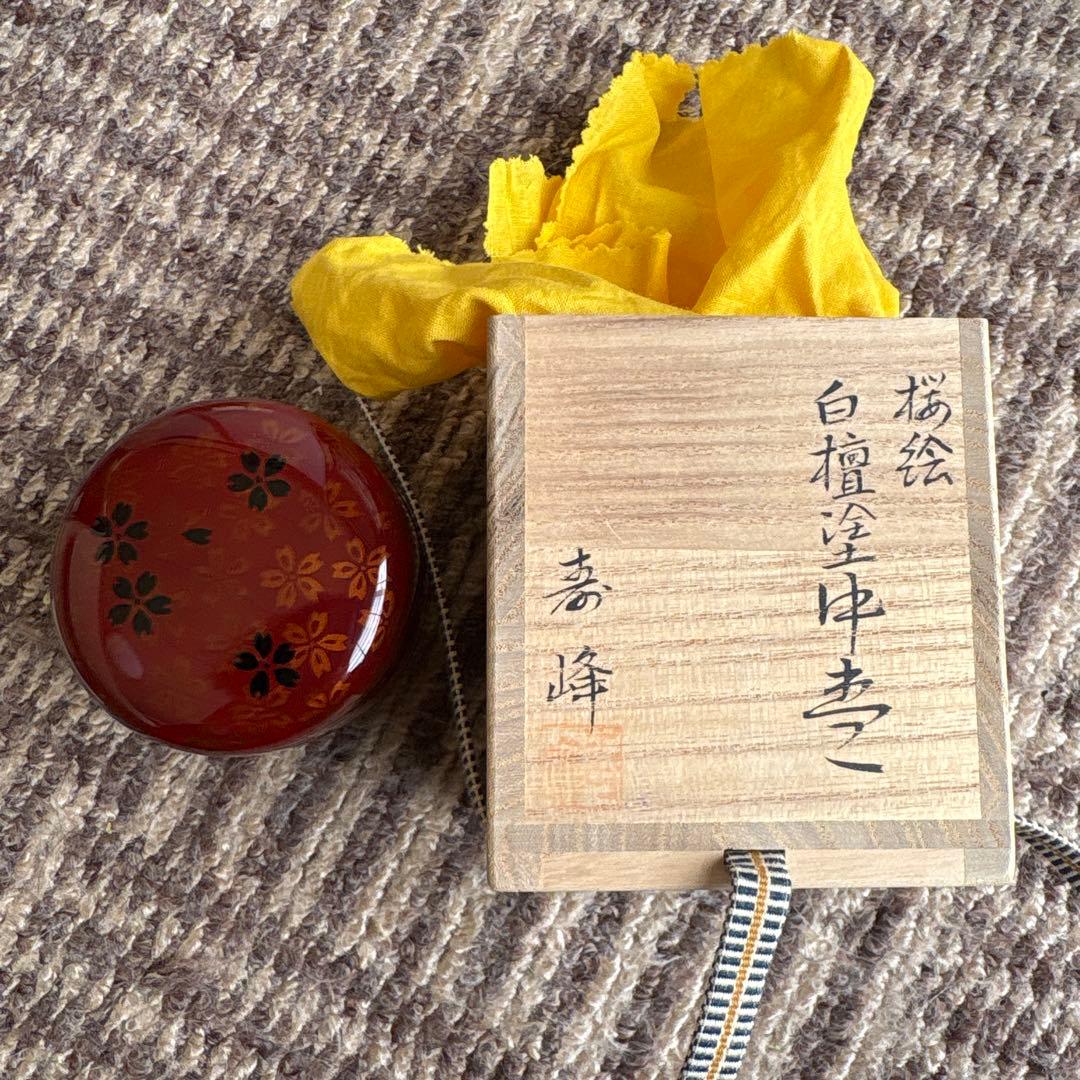 桜絵
白檀塗中棗
寿峰